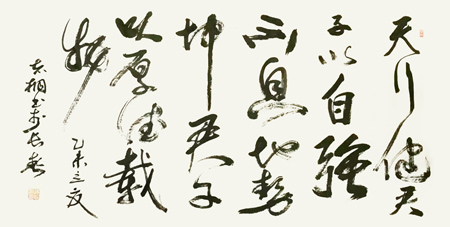 天行健君
子以自強
不息地勢
坤君子
以厚德載
物
乙未夏
桐书于长春